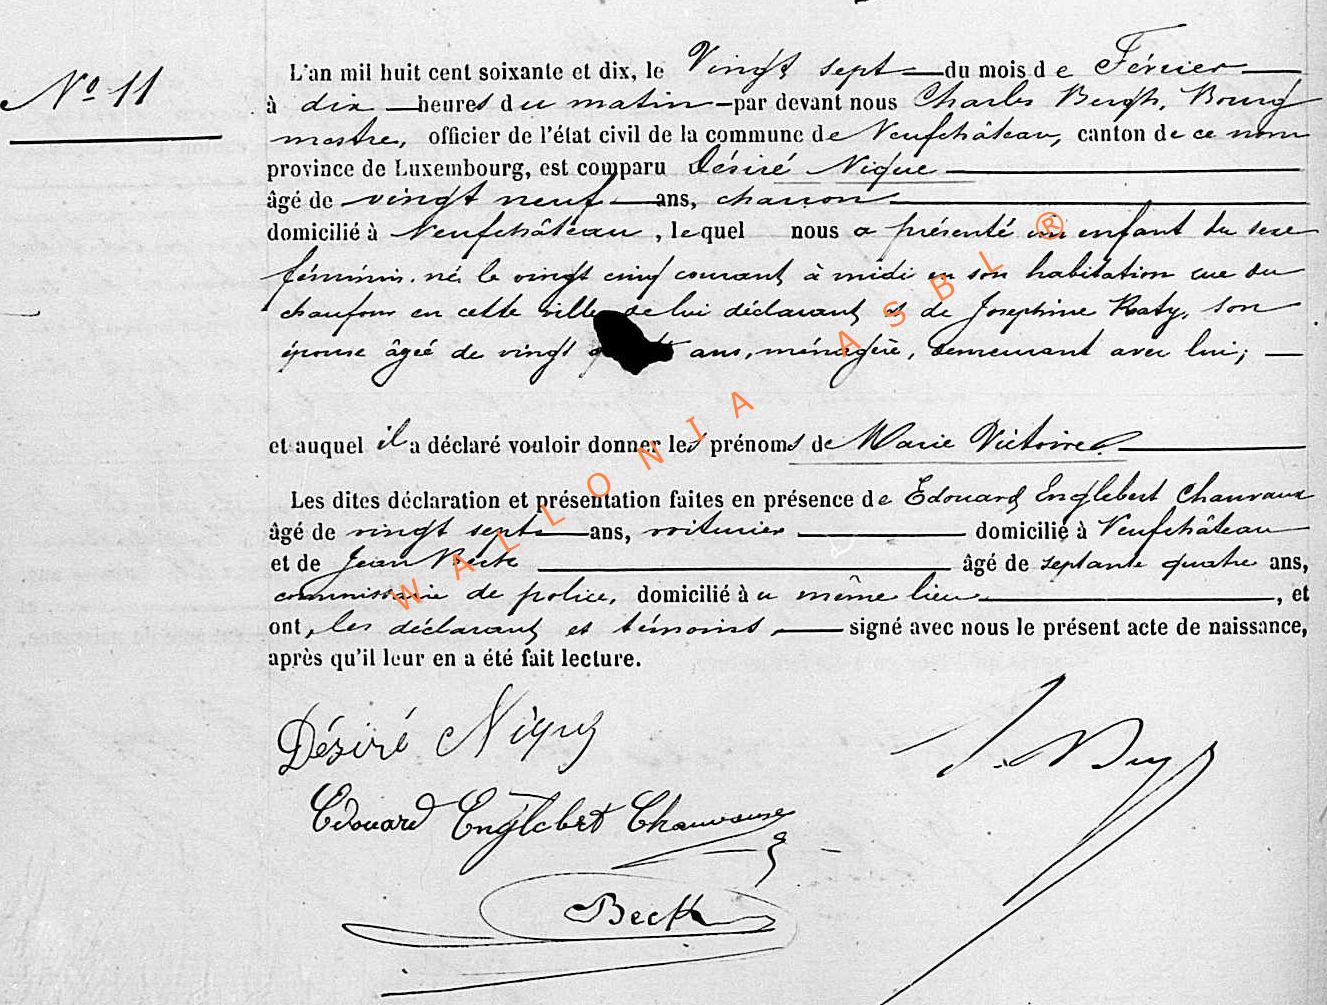 Nº 11
L'an mil huit cent soixante et dix, le Vingt sept du mois de Février
à dix heures du matin par devant nous Charles Bergh, Bourg
mestre, officier de l'état civil de la commune de Neufchâteau, canton de ce nom
province de Luxembourg, est comparu Désiré Nique
âgé de vingt neuf ans, charron
domicilié à Neufchâteau, lequel nous a présenté un enfant du sexe
féminin né le vingt cinq courant à midi en son habitation rue du
chaufour en cette ville de lui déclarant et de Josephine Raty, son
épouse âgée de vingt ans, ménagère, demeurant avec lui;
et auquel il a déclaré vouloir donner les prénoms de Marie Victoire
Les dites déclaration et présentation faites en présence de Edouard Englebert Chauvaux
âgé de vingt sept ans, voiturier domicilié à Neufchâteau
et de Jean Beck âgé de septante quatre ans,
commissaire de police, domicilié à u même lieu, et
ont, les déclarant et témoins, signé avec nous le présent acte de naissance,
après qu'il leur en a été fait lecture.
Désiré Nique
Edouard Englebert Chauvaux
Beck
WALLONIA ASBL ®